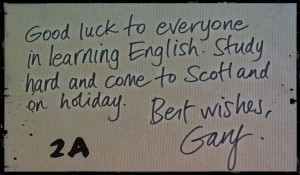 Good luck to everyone
in learning English. Study
hard and come to Scotland
on holiday.
Best wishes,
Gary.
2A